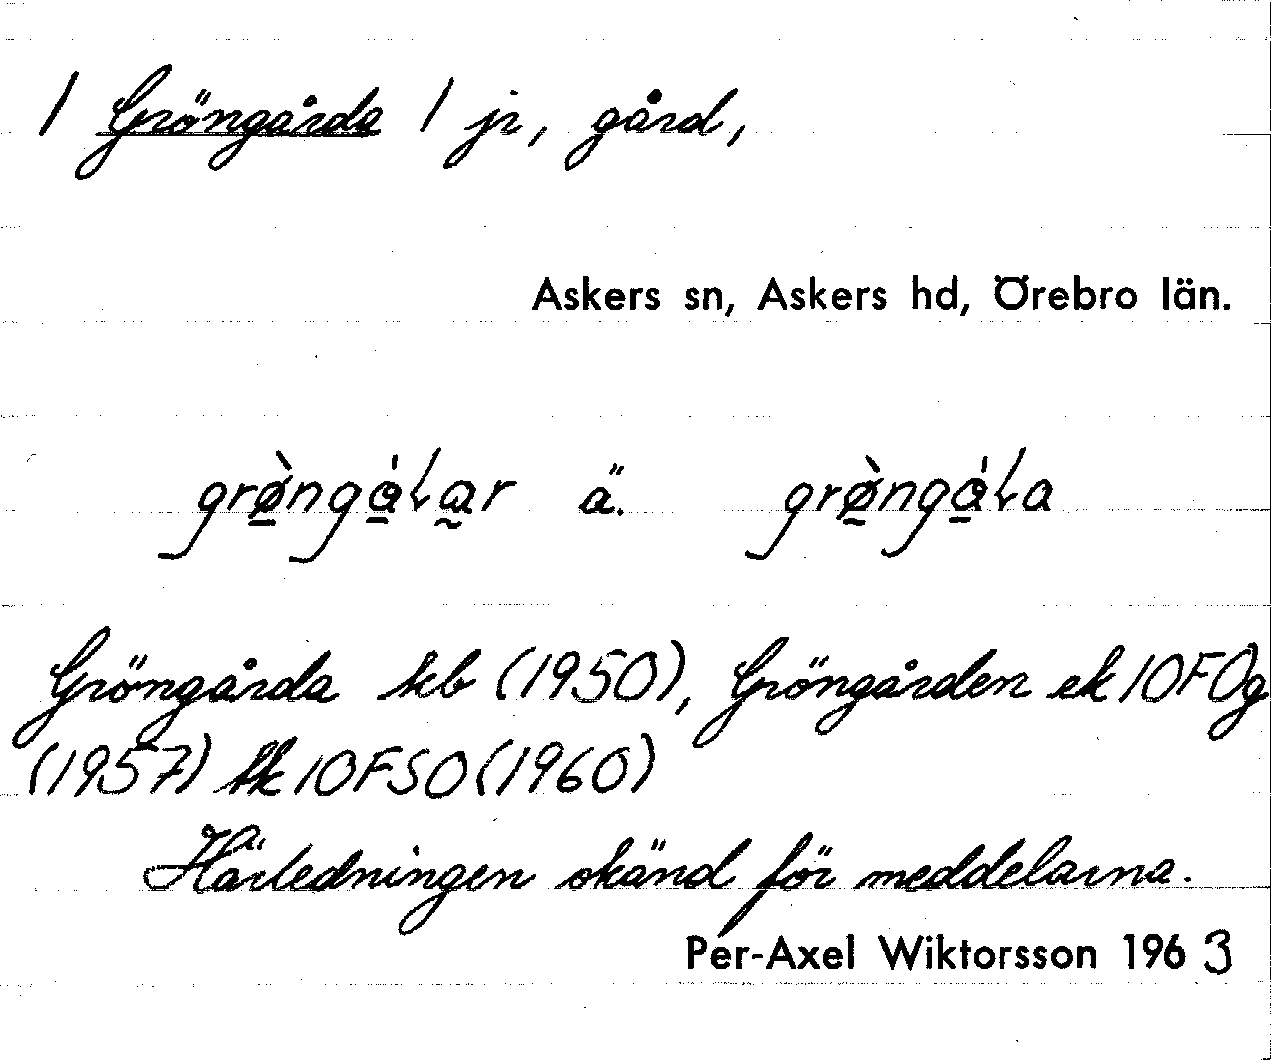 / Gröngårda / jr, gård,
Askers sn, Askers hd, Örebro län.
ä.
Gröngårda kb (1950), Gröngården ek 10FÖg
(1957) tk 10FSO (1960)
Härledningen okänd för meddelarna.
Per-Axel Wiktorsson 1963